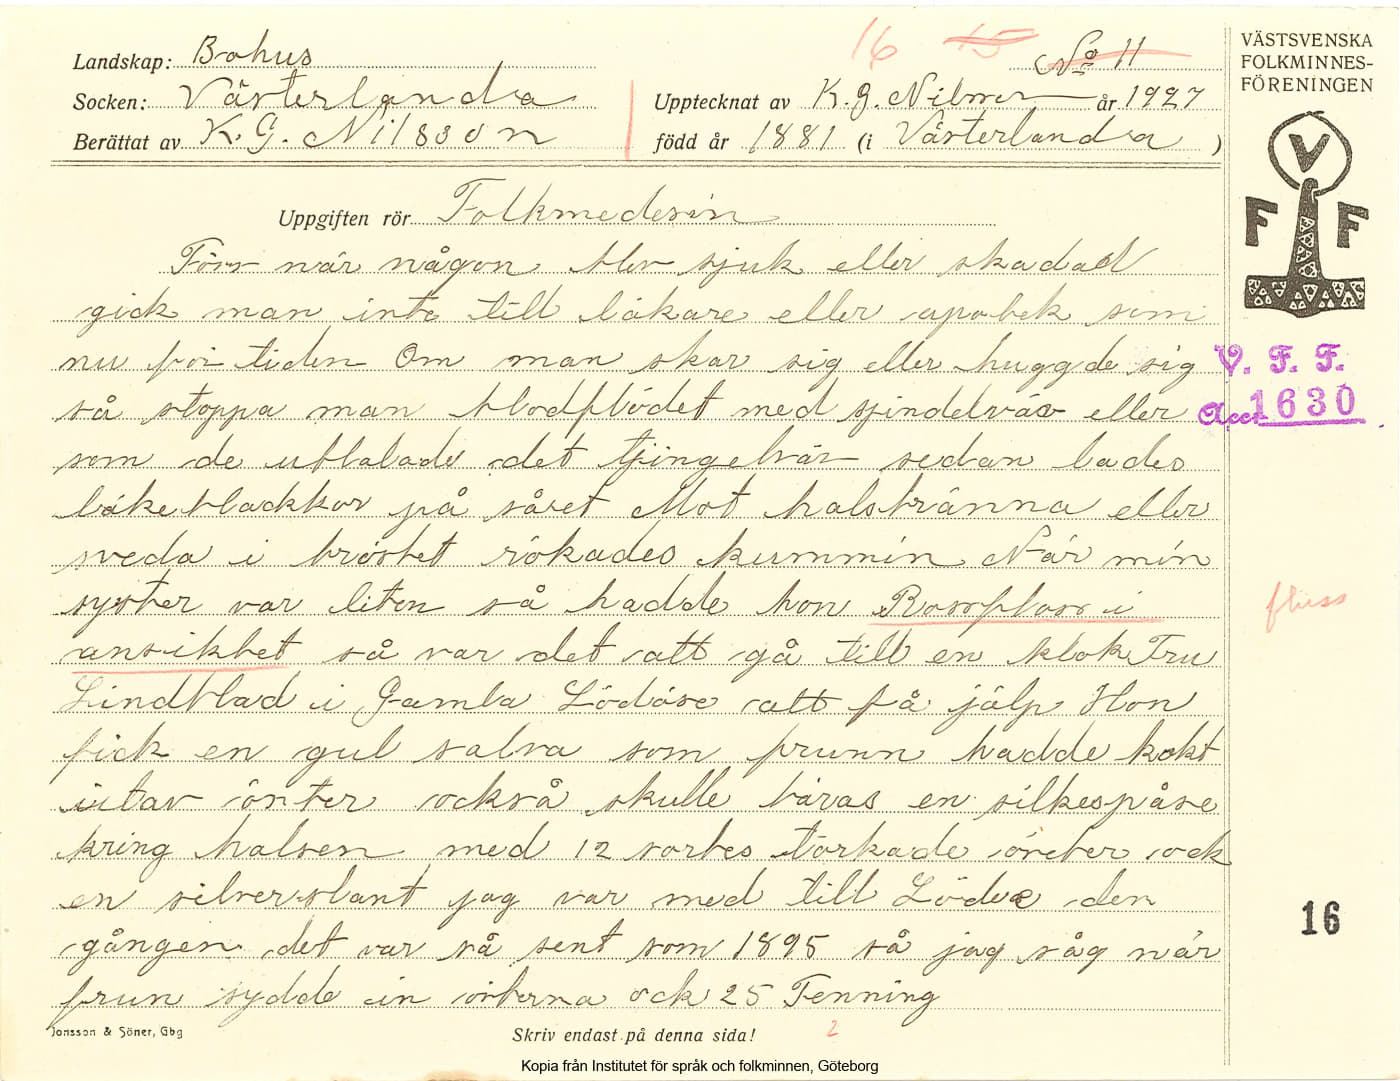 Landskap: Bohus
Socken: Västerlanda
Berättat av K. G. Nilsson
16 15 No 11
Upptecknat av K. G. Nilsson år 1927
född år 1881 (i Västerlanda )
VÄSTSVENSKA
FOLKMINNES-
FÖRENINGEN
V
F F
Uppgiften rör Folkmedesin
Förr när någon blev sjuk eller skadad
gick man inte till läkare eller apotek som
nu för tiden Om man skar sig eller huggde sig
så stoppa man blodflödet med spindelväv eller
som de uttalade det tjingelvär sedan lades
läkebladkkor på såret Mot halsbränna eller
sveda i bröstet rökades kummin När min
syster var liten så hadde hon Rossfloss i
ansiktet så var det att gå till en klok Fru
Lindblad i Gamla Lödöse att få jälp Hon
fick en gul salva som frunn hadde kokt
utav örter också skulle bäras en silkespåse
kring halsen med 12 sortes törkade örter ock
en silverslant jag var med till Lödöse den
gången det var så sent som 1895 så jag såg när
frun sydde in örterna ock 25 Fenning
V. F. F.
Acc. 1630
fluss
16
Jonsson & Söner, Gbg
Skriv endast på denna sida!
2
Kopia från Institutet för språk och folkminnen, Göteborg